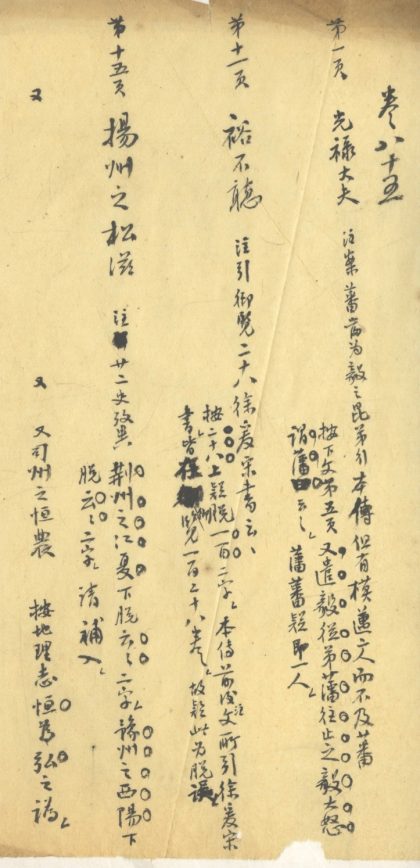 卷八十五
第一頁 光祿大夫 注案蕃當為毅之昆弟引本傳但有模邁二人而不及蕃
按下文第五頁又遣毅從弟藩往止之毅大怒
謂藩曰云〻 藩蕃疑即一人
第十一頁 裕不聽 注引御覽二十八徐爰宋書云〻
按二十八上疑脫一百二字本傳前後文注所引徐爰宋
書皆御覽一百二十八卷 故疑此為脫誤
第十五頁 揚州之松滋 注廿二史攷異荆州之江夏下脫云〻二字豫州之西陽下
脫云〻二字請補入
又 又 又司州之恒農 按地理志恒為弘之譌